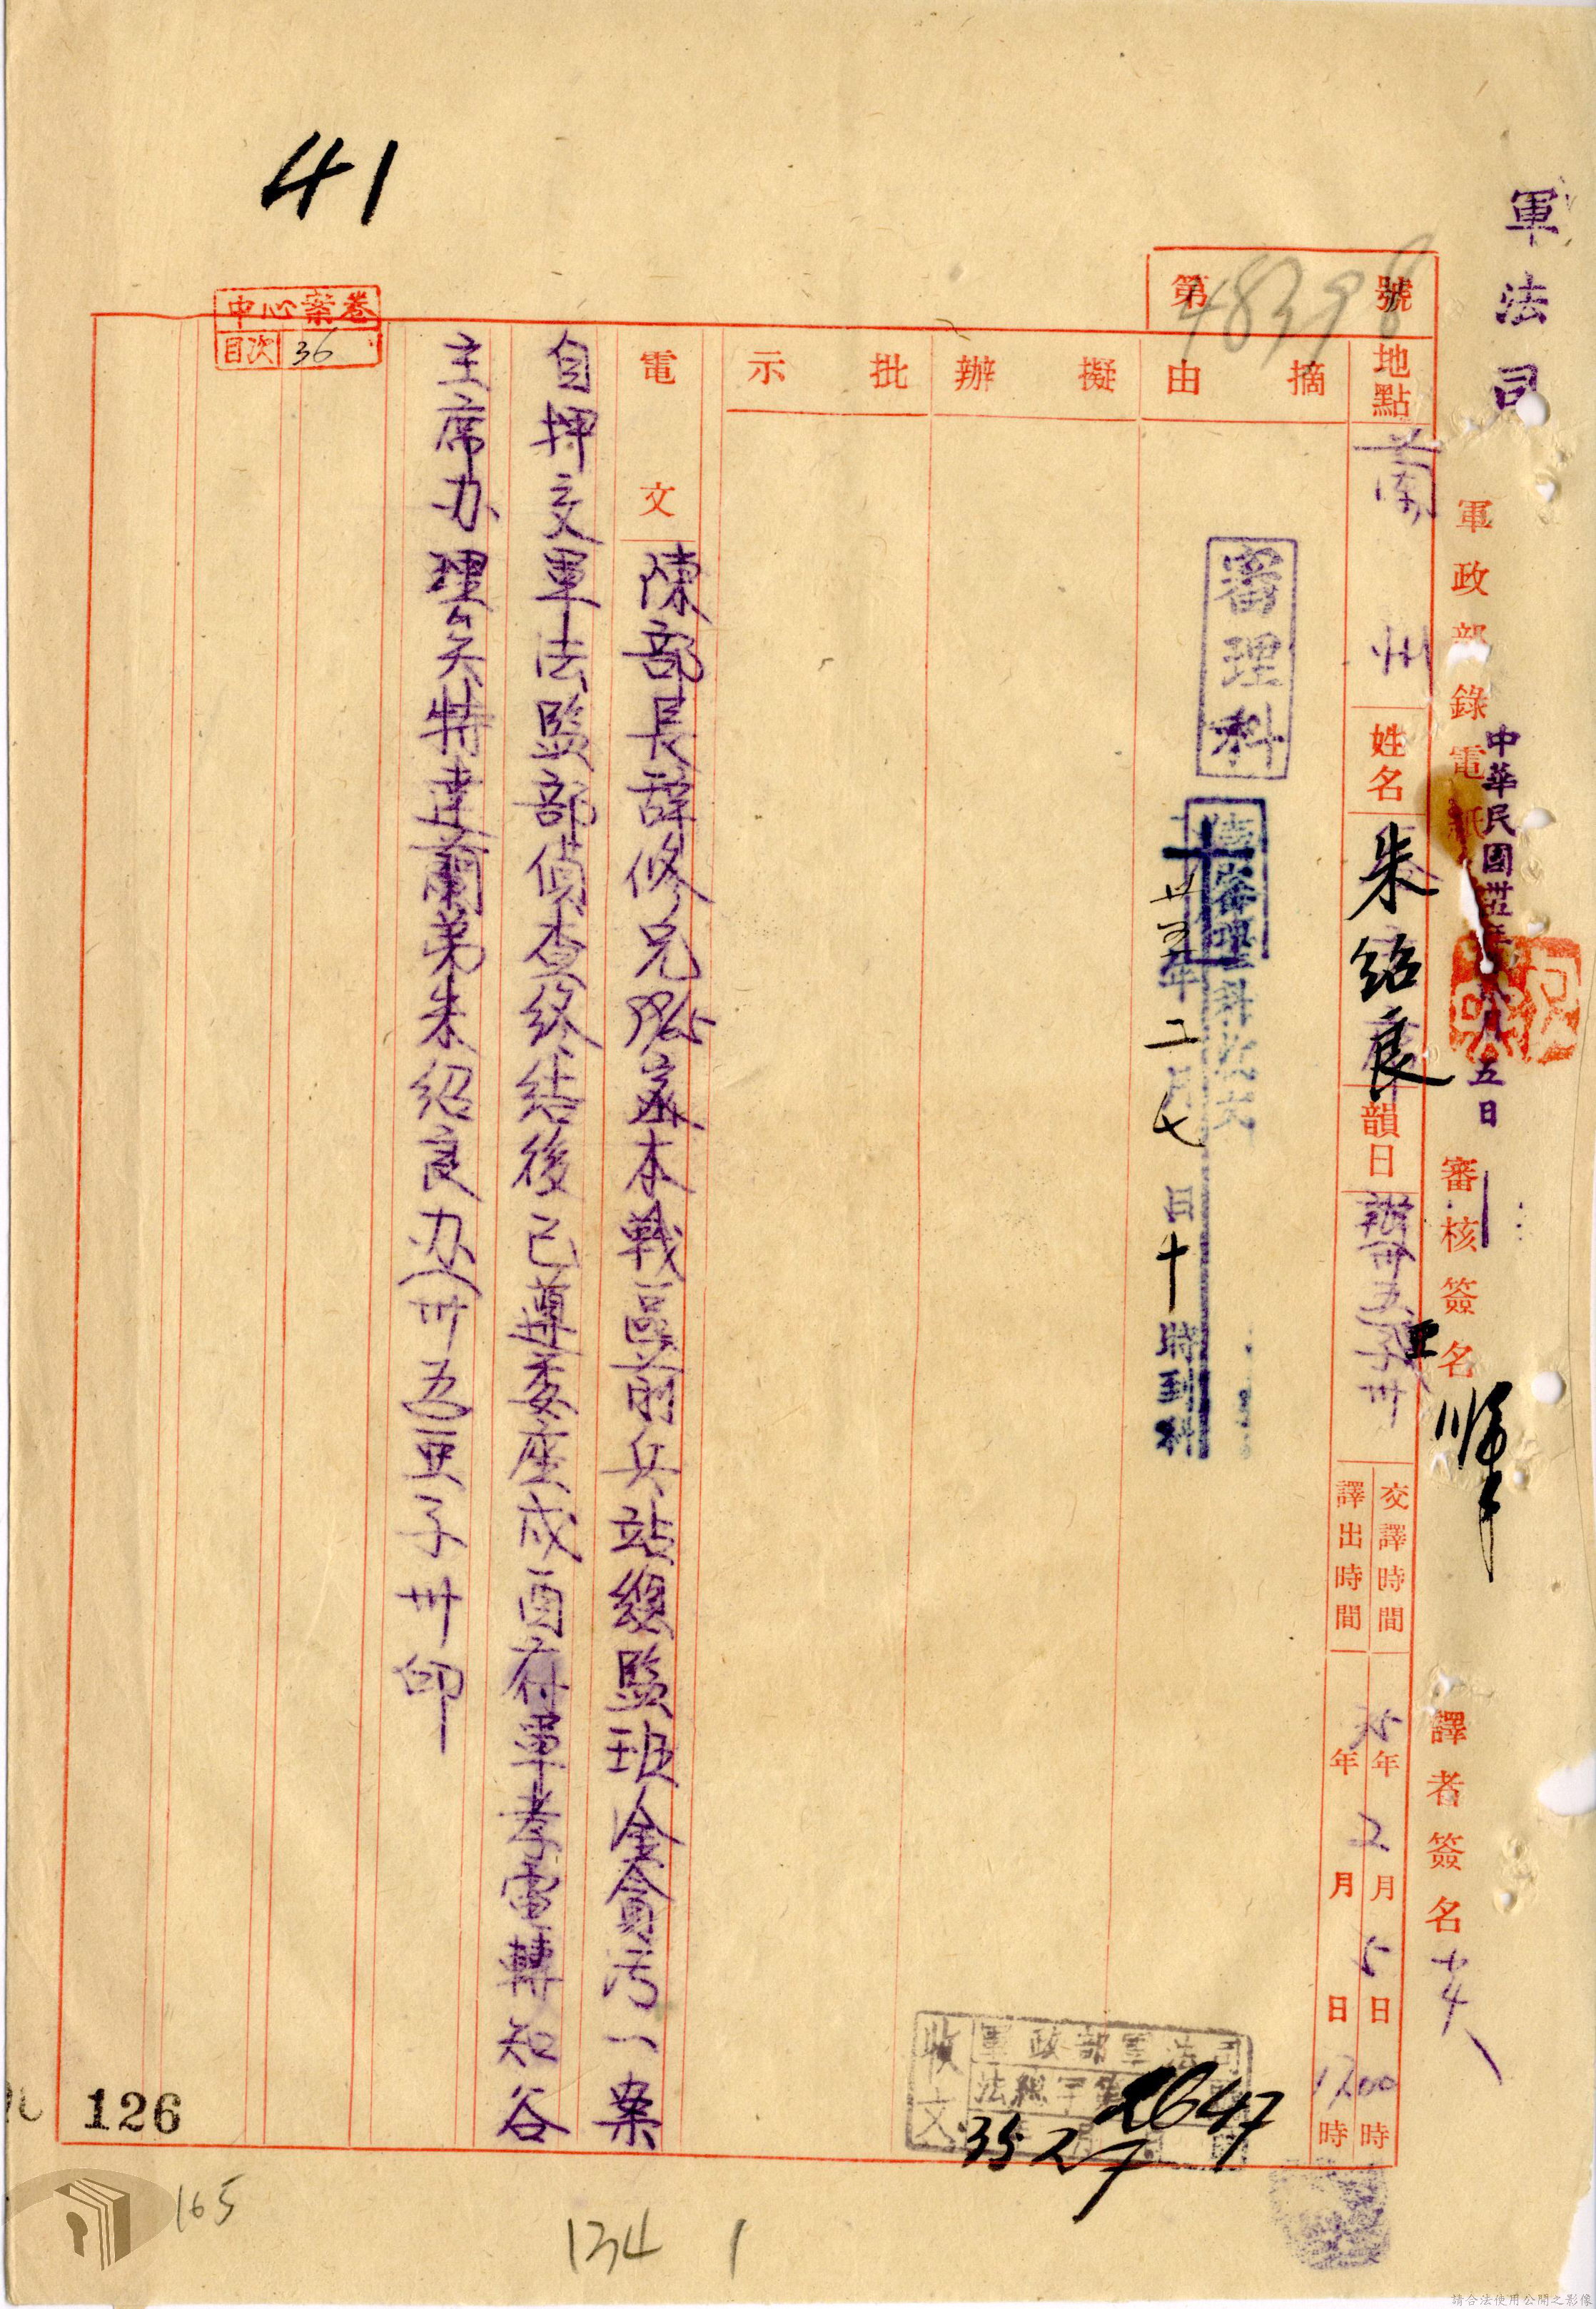 41
軍法司
軍政部錄電紙
中華民國卅五年 月五日
審核簽名
譯者簽名
第48398號
地點 蘭州
姓名 朱紹良
韻日
交譯時間 35年2月5日1700時
譯出時間 年 月 日 時
摘由
擬辦
批示
審理科
卅五年二月七日十時到科
收文
軍政部軍法司
2647
35 2 7
電文
陳部長辭修兄 密本戰區前兵站總監班淦貪污一案
自押交軍法監部偵查終結後已遵委座戌酉府軍孝電轉知谷
主席办理矣特達蘭弟朱紹良办(卅五)亜子卅印
中心案卷
目次 36
126
165
134
1
請合法使用公開之影像